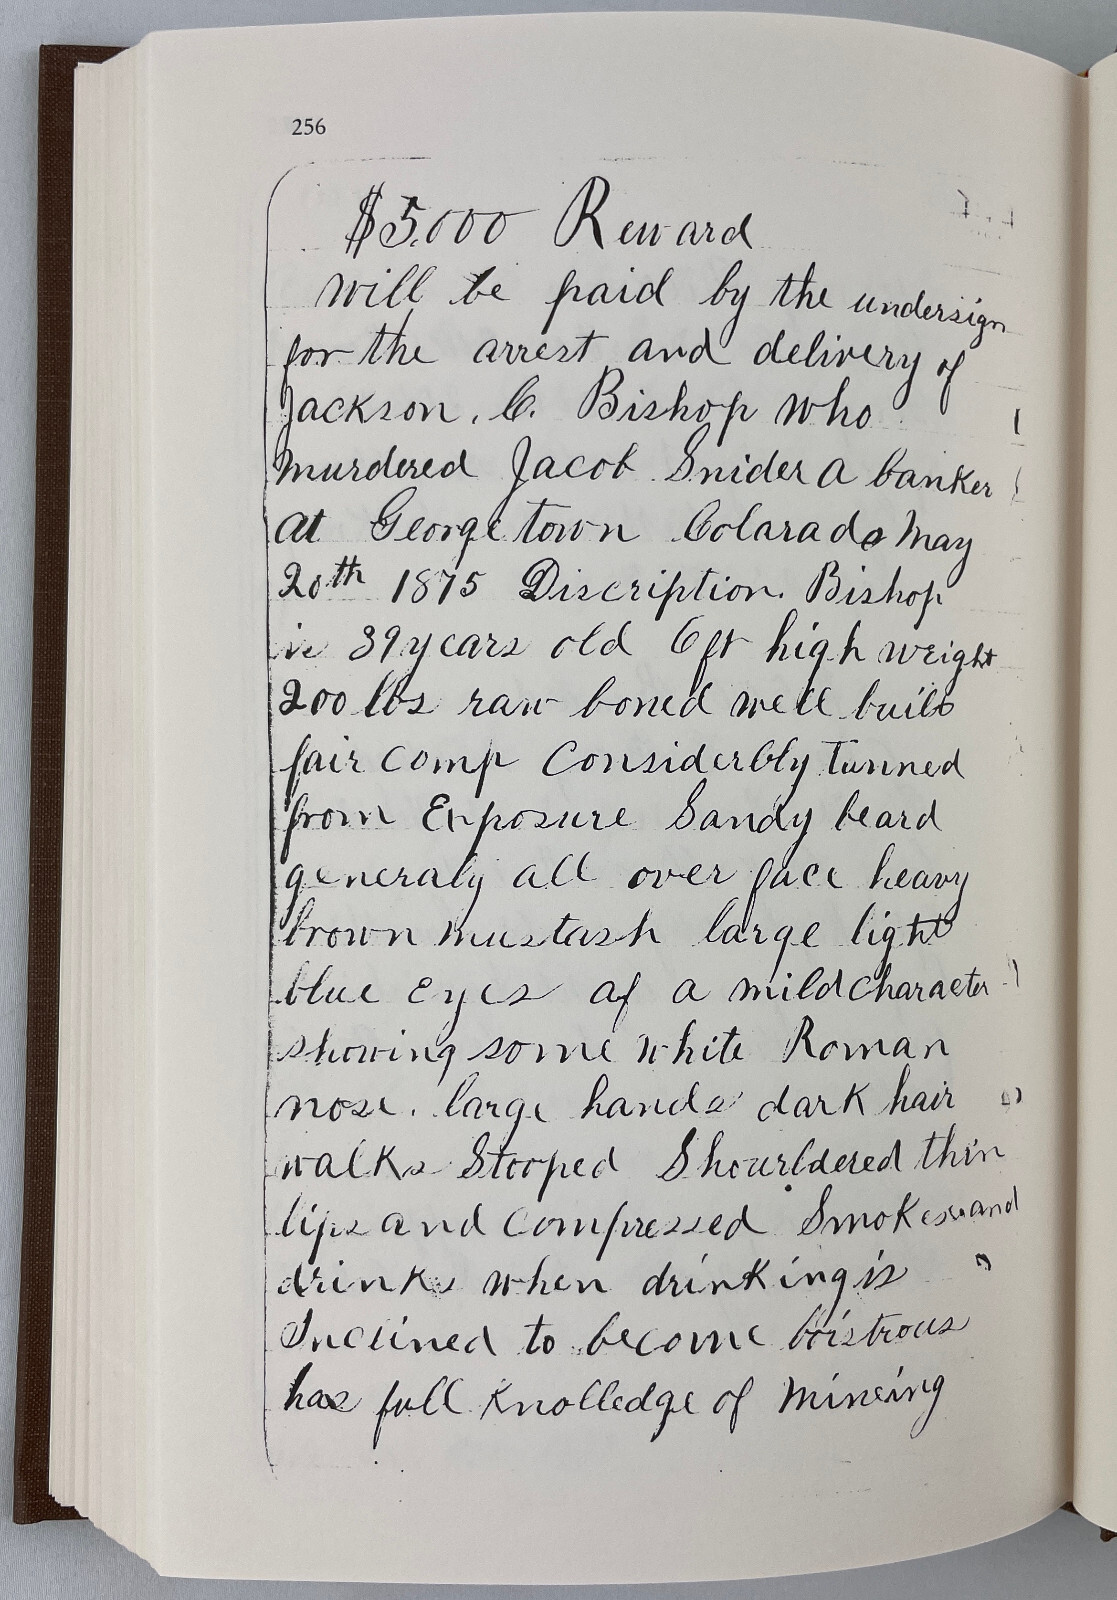 256
$5.000 Reward
will be paid by the undersign
for the arrest and delivery of
Jackson. C. Bishop who
murdered Jacob Snider a banker
at Georgetown Colarado May
20th 1875 Discription. Bishop
is 39 years old 6 ft high weight
200 lbs raw boned well built
fair comp Considerbly tunned
from Exposure Sandy beard
generaly all over face heavy
brown mustash large light
blue Eyes af a mild character
showing some white Roman
nose. large hands dark hair
walks Stooped Shourldered thin
lips and compressed Smokes and
drinks when drinking is
Inclined to become boistrous
has full knolledge of mineing